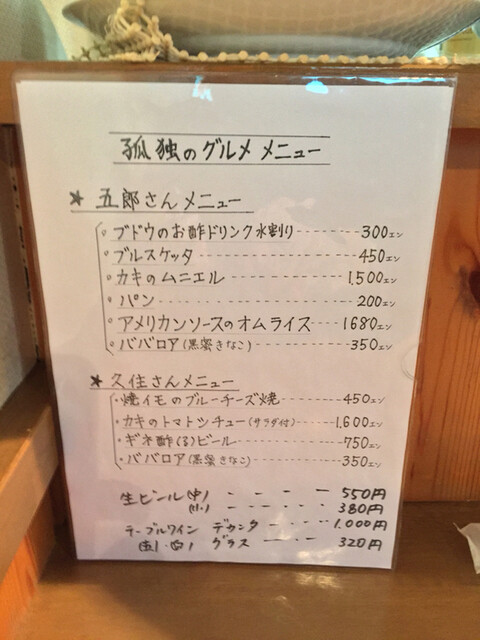 孤独のグルメ メニュー
★ 五郎さんメニュー
ブドウのお酢ドリンク水割り 300エン
ブルスケッタ 450エン
カキのムニエル 1,500エン
パン 200エン
アメリカンソースのオムライス 1680エン
ババロア(黒蜜きなこ) 350エン
★ 久住さんメニュー
焼イモのブルーチーズ焼 450エン
カキのトマトシチュー(サラダ付) 1,600エン
ギネ酢(る)ビール 750エン
ババロア(黒蜜きなこ) 350エン
生ビール(中) 550円
(小) 380円
テーブルワイン デカンタ 1,000円
グラス 320円